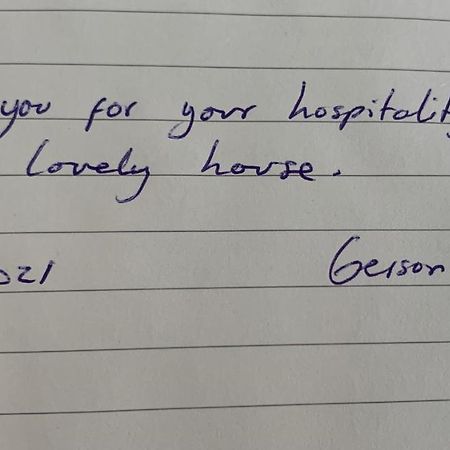 you for your hospitality
lovely house.
021 Gerson